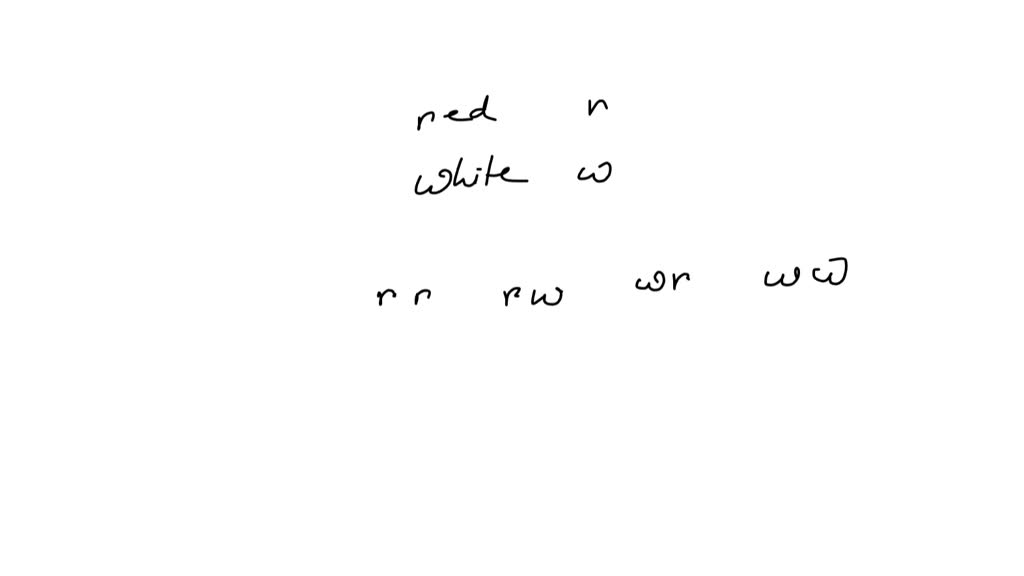 red r
white w
rr rw wr ww